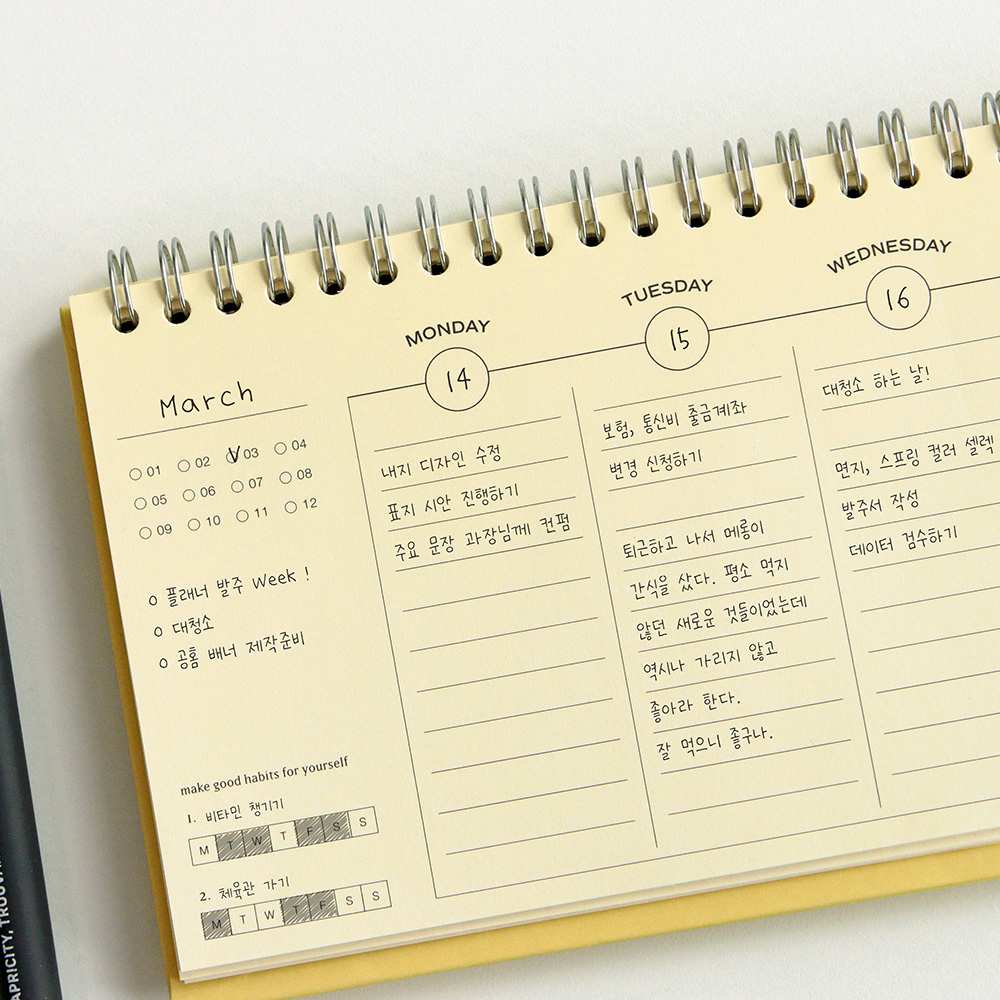 March
01 02 V03 04
05 06 07 08
09 10 11 12
o 플래너 발주 Week !
o 대청소
o 공홈 배너 제작준비
make good habits for yourself
1. 비타민 챙기기
M T W T F S S
2. 체육관 가기
M T W T F S S
MONDAY
14
내지 디자인 수정
표지 시안 진행하기
주요 문장 과장님께 컨펌
TUESDAY
15
보험, 통신비 출금계좌
변경 신청하기
퇴근하고 나서 메롱이
간식을 샀다. 평소 먹지
않던 새로운 것들이었는데
역시나 가리지 않고
좋아라 한다.
잘 먹으니 좋구나.
WEDNESDAY
16
대청소 하는 날!
면지, 스프링 컬러 셀렉
발주서 작성
데이터 검수하기
APRICITY,